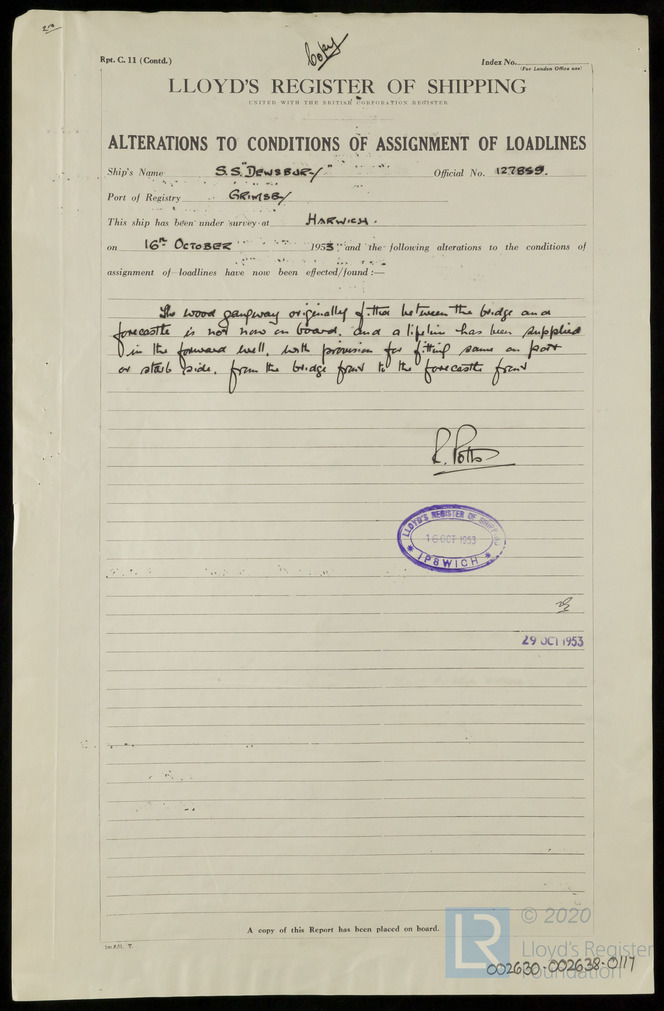 Copy
Rpt. C. 11 (Contd.)
Index No.
(For London Office use)
LLOYD'S REGISTER OF SHIPPING
UNITED WITH THE BRITISH CORPORATION REGISTER
ALTERATIONS TO CONDITIONS OF ASSIGNMENT OF LOADLINES
Ship's Name S.S. "DEWSBURY" Official No. 127859.
Port of Registry GRIMSBY
This ship has been under survey at HARWICH.
on 16th OCTOBER 1953 and the following alterations to the conditions of
assignment of loadlines have now been effected/found :—
The wood gangway originally fitted between the bridge and
forecastle is not now on board, and a lifeline has been supplied
in the forward well, with provision for fitting same on port
or starb side, from the bridge front to the forecastle front
R. Potts
LLOYD'S REGISTER OF SHIPPING
16 OCT 1953
IPSWICH
29 OCT 1953
A copy of this Report has been placed on board.
LR © 2020
Lloyd's Register
Foundation
002630-002638-0117